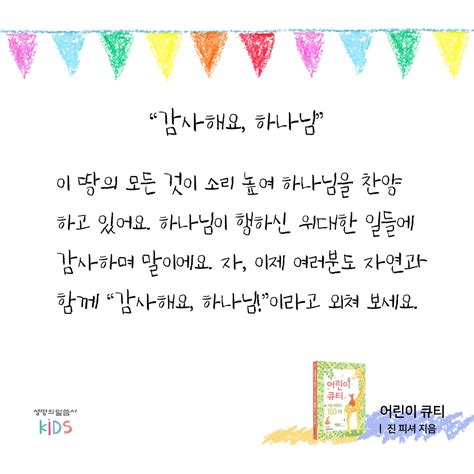 “감사해요, 하나님”
이 땅의 모든 것이 소리 높여 하나님을 찬양
하고 있어요. 하나님이 행하신 위대한 일들에
감사하며 말이에요. 자, 이제 여러분도 자연과
함께 “감사해요, 하나님!”이라고 외쳐 보세요.
생명의말씀사
KiDS
어린이
큐티
100
어린이 큐티
| 진 피셔 지음